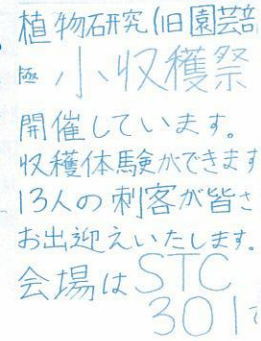 植物研究(旧園芸部
極小収穫祭
開催しています。
収穫体験ができます
13人の刺客が皆さ
お出迎えいたします。
会場はSTC
301で